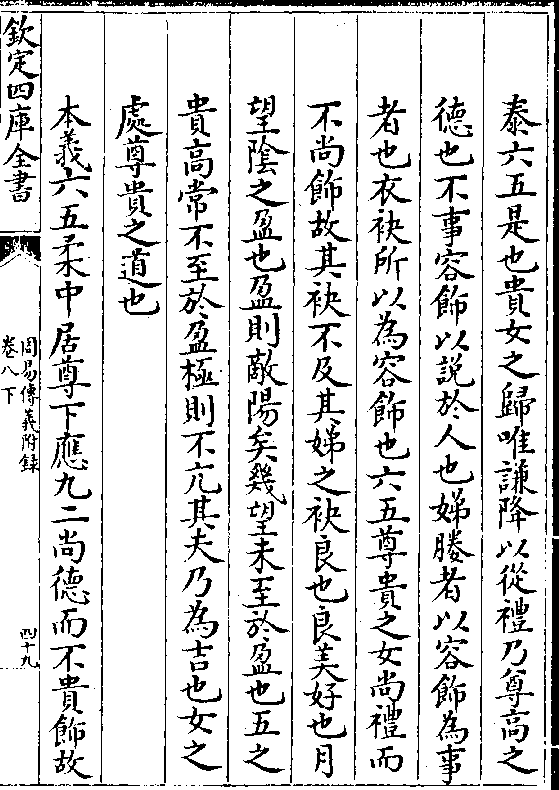 泰六五是也貴女之歸唯謙降以從禮乃尊高之
德也不事容飾以説於人也娣媵者以容飾為事
者也衣袂所以為容飾也六五尊貴之女尚禮而
不尚飾故其袂不及其娣之袂良也良美好也月
望陰之盈也盈則敵陽矣幾望未至於盈也五之
貴高常不至於盈極則不亢其夫乃為吉也女之
處尊貴之道也
本義六五柔中居尊下應九二尚德而不貴飾故
欽定四庫全書
周易傳義附録
卷八下
四十九